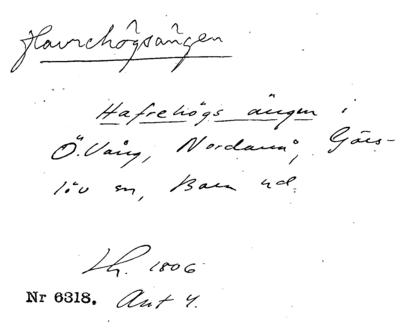 Havrehögsängen
Hafrehögs ängen i
Ö. Vång, Nordanå, Görs-
löv sn, Bara hd
Lh. 1806
Nr 6318. Akt 4.